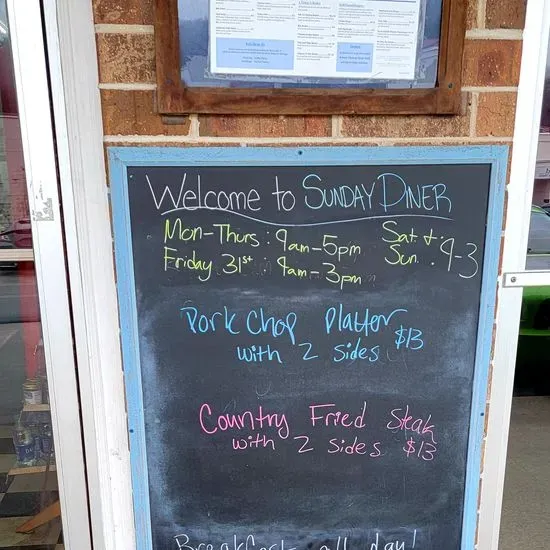 Welcome to SUNDAY DINER
Mon-Thurs: 9am-5pm Sat. +
Friday 31st: 9am-3pm Sun. : 9-3
Pork Chop Platter
with 2 sides $13
Country Fried Steak
with 2 sides $13
Breakfast all day!